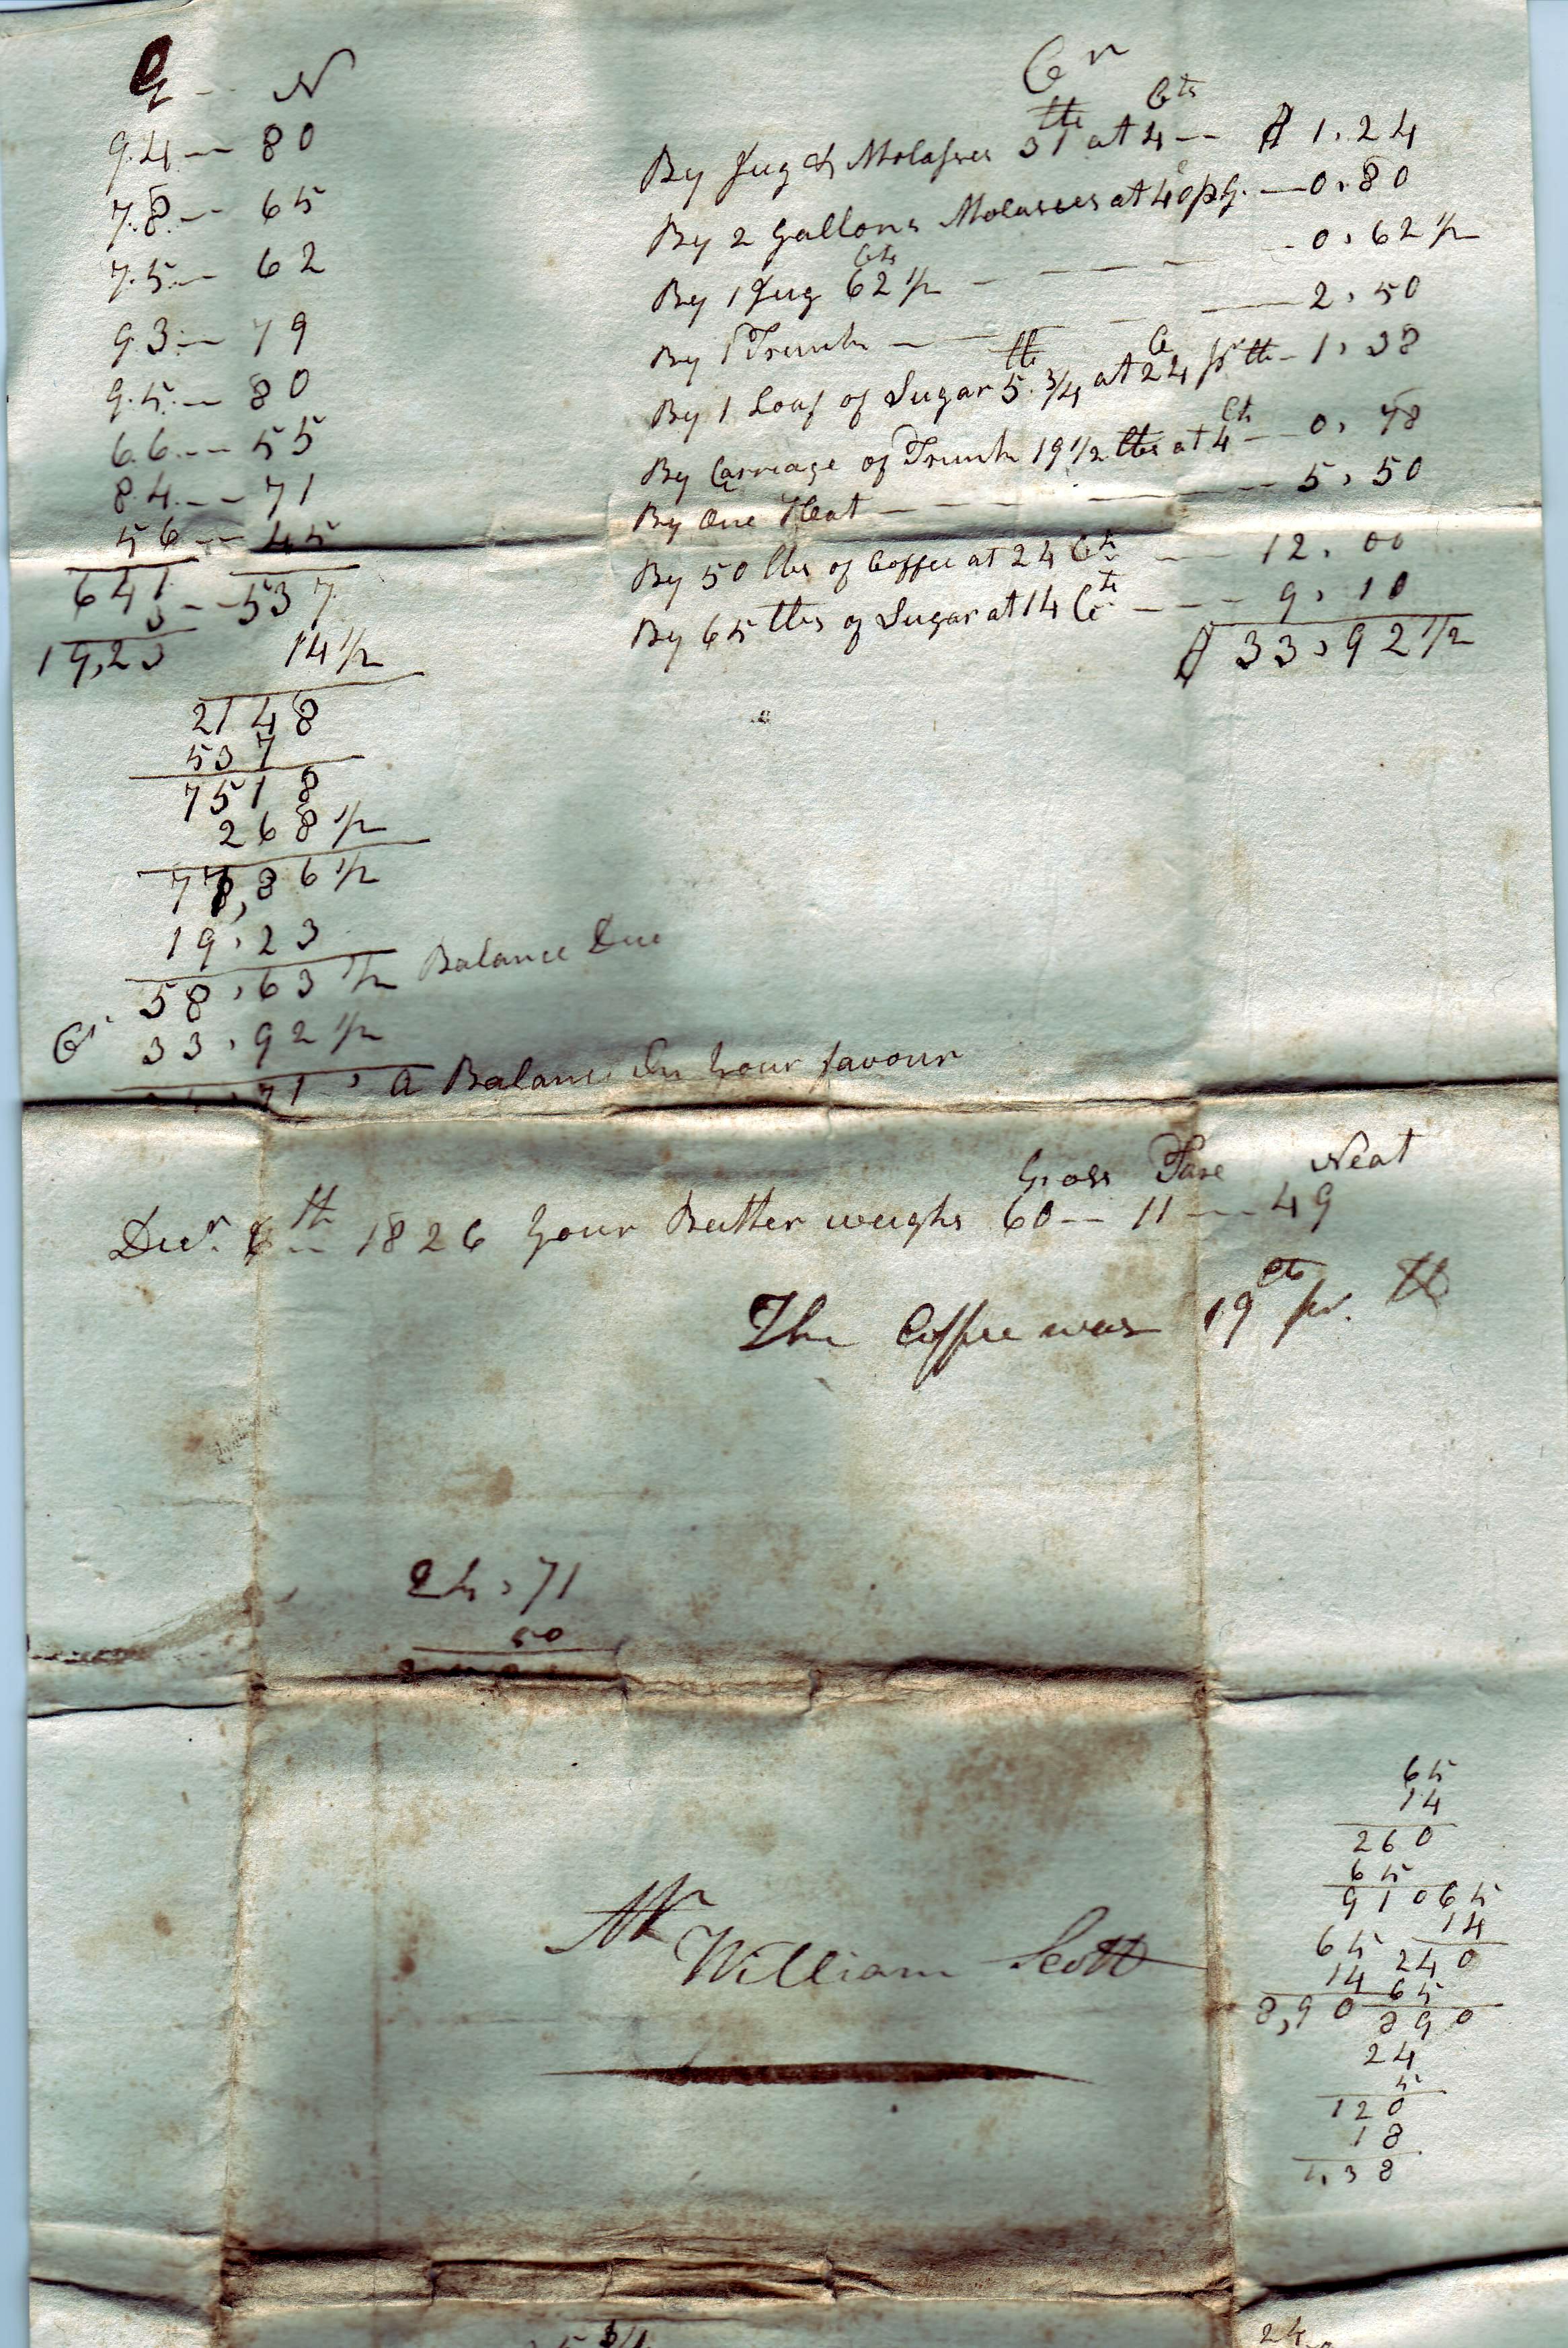 G -- N
94 -- 80
78 -- 65
75 -- 62
93 -- 79
95 -- 80
66 -- 55
84 -- 71
56 -- 45
641 -- 537
3
19,23 14 1/2
2148
537
7518
268 1/2
77,86 1/2
19,23
58,63 1/2 Balance Due
Cr 33,92 1/2
71, a Balance In Your favour
Cr
By Jug & Molasses 31 lbs at 4 Cts -- $ 1,24
By 2 Gallons Molasses at 40 c p G. -- 0,80
By 1 Jug 62 1/2 Cts -- 0,62 1/2
By 1 Trunk -- 2,50
By 1 Loaf of Sugar 5 3/4 lb at 24 C pr lb -- 1,38
By Carriage of Trunk 19 1/2 lbs at 4 Cts -- 0,78
By One Hat -- 5,50
By 50 lbs of Coffee at 24 Cts -- 12,00
By 65 lbs of Sugar at 14 Cts -- 9,10
$ 33,92 1/2
Gross Tare Neat
Decr. 6th 1826 Your Butter weighs 60 -- 11 -- 49
The Coffee was 19 cts pr. lb
24,71
50
Mr
William Scott
65
14
260
65
910 65
14
65 240
14 65
8,90 890
24
5
120
18
1,38
24